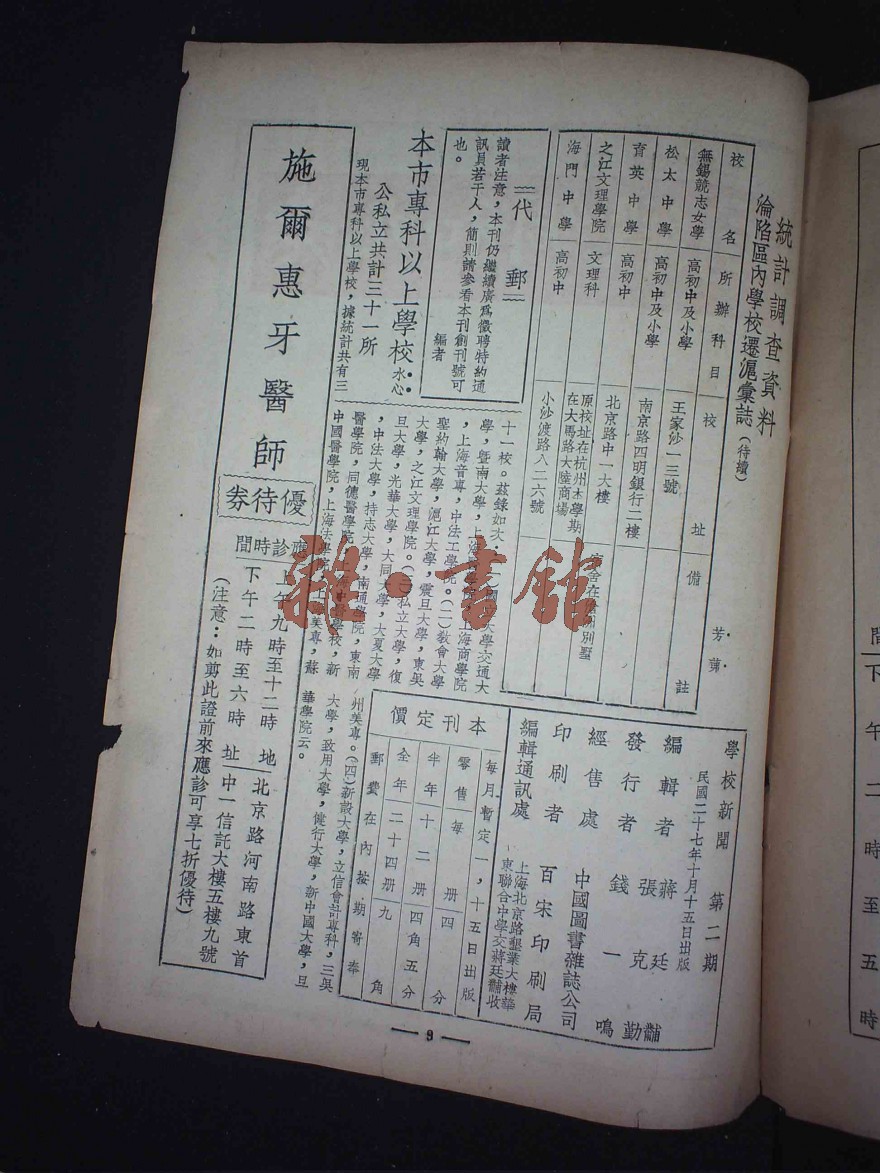 統計調查資料
淪陷區內學校遷滬彙誌(待續)
芳蒲
校名 所辦科目 校址 備註
無錫競志女學 高初中及小學 王家沙一三號
松太中學 高初中及小學 南京路四明銀行二樓
育英中學 高初中 北京路中一大樓
之江文理學院 文理科 原校址在杭州本學期
在大馬路大陸商場
舍在 別墅
海門中學 高初中 小沙渡路八二六號
代郵
讀者注意,本刊仍繼續廣爲徵聘特約通
訊員若干人,簡則請參看本刊創刊號可
也。
編者
本市專科以上學校
水心
公私立共計三十一所
現本市專科以上學校,據統計共有三
十一校。茲錄如次:(一)國 大學交通大
學,暨南大學,上海 學院,上海商學院
,上海音專,中法工學院。(二)教會大學
聖約翰大學,滬江大學,震旦大學,東吳
大學,之江文理學院。(三)私立大學,復
旦大學,光華大學,大同大學,大夏大學
,中法大學,持志大學,南通學院,東南
醫學院,同德醫學院,上海中醫學校,新
中國醫學院,上海法學院,上海美專,蘇
州美專。(四)新設大學,立信會計專科,三吳
大學,致用大學,健行大學,新中國大學,旦
華學院云。
學校新聞 第二期
民國二十七年十月十五日出版
編輯者 蔣廷黼
張克勤
發行者 錢一鳴
經售處 中國圖書雜誌公司
印刷者 百宋印刷局
編輯通訊處 上海北京路墾業大樓華
東聯合中學交蔣廷黼收
本刊定價
每月暫定一,十五日出版
零售每册四分
半年十二册四角五分
全年二十四册九角
郵費在內按期寄奉
施爾惠牙醫師
優待券
應診時間
上午九時至十二時
下午二時至六時
地址
北京路河南路東首
中一信託大樓五樓九號
(注意:如剪此證前來應診可享七折優待)
— 9 —
雜·書館
間
下午二時至五時